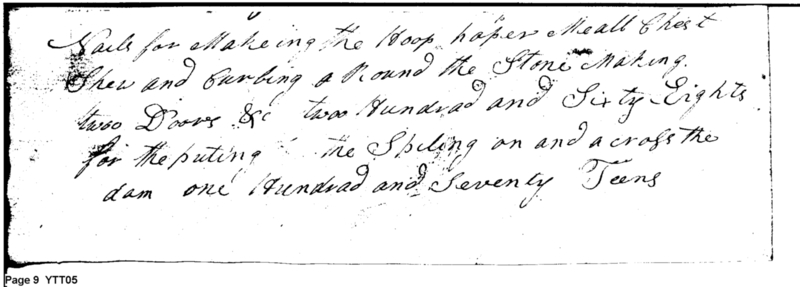 Nails for Makeing the Hoop haper Meall Chest
Shew and Curbing a Round the Stone Making
two Doors &c two Hundrad and Sixty Eights
for the puting the Spiling on and a cross the
dam one Hundrad and Seventy Teens
Page 9 YTT05